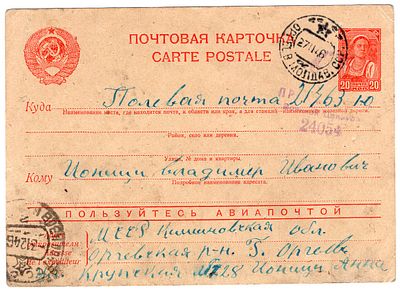 ПОЧТОВАЯ КАРТОЧКА
CARTE POSTALE
20 20
Куда Полевая почта 21363 ю
Наименование места, где находится почта, а области или края, а для станции наименование железной дороги
24054
Район, село или деревня.
Улица, № дома и квартиры
Кому Ионици Владимер Иванович
Подробное наименование адресата.
ПОЛЬЗУЙТЕСЬ АВИАПОЧТОЙ
МССР Кишиневская обл.
Оргеевская р-н. Г. Оргеев
Крупская № 28 Ионици Анна